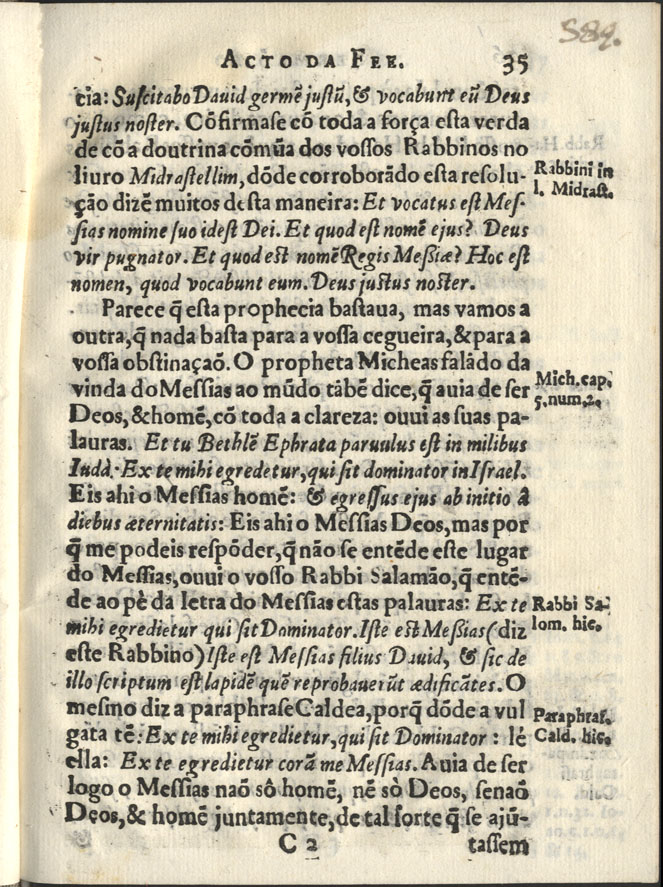 589.
ACTO DA FEE. 35
cia: Suscitabo Dauid germẽ justũ, & vocabunt eũ Deus
justus noster. Cõfirmase cõ toda a força esta verda
de cõ a doutrina cõmũa dos vossos Rabbinos no
liuro Midrastellim, dõde corroborãdo esta resolu-
ção dizẽ muitos desta maneira: Et vocatus est Mes-
sias nomine suo idest Dei. Et quod est nomẽ ejus? Deus
vir pugnator. Et quod est nomẽ Regis Meßiæ? Hoc est
nomen, quod vocabunt eum. Deus justus noster.
Parece q̃ esta prophecia bastaua, mas vamos a
outra, q̃ nada basta para a vossa cegueira, & para a
vossa obstinaçaõ. O propheta Micheas falãdo da
vinda do Messias ao mũdo tãbẽ dice, q̃ auia de ser
Deos, & homẽ, cõ toda a clareza: ouui as suas pa-
lauras. Et tu Bethlẽ Ephrata paruulus est in milibus
Iudà. Ex te mihi egredetur, qui sit dominator in Israel.
Eis ahi o Messias homẽ: & egressus ejus ab initio à
diebus æternitatis: Eis ahi o Messias Deos, mas por
q̃ me podeis respõder, q̃ não se entẽde este lugar
do Messias, ouui o vosso Rabbi Salamão, q̃ entẽ-
de ao pè da letra do Messias estas palauras: Ex te
mihi egredietur qui sit Dominator. Iste est Meßias (diz
este Rabbino) Iste est Messias filius Dauid, & sic de
illo scriptum est lapidẽ quẽ reprobauerũt ædificãtes. O
mesmo diz a paraphrase Caldea, porq̃ dõde a vul
gata tẽ: Ex te mihi egredietur, qui sit Dominator : lé
ella: Ex te egredietur corã me Messias. Auia de ser
logo o Messias naõ sô homẽ, nẽ sò Deos, senaõ
Deos, & homẽ juntamente, de tal sorte q̃ se ajũ-
C 2 tassem
Rabbini in
l. Midrast.
Mich. cap.
5. num. 2.
Rabbi Sa-
lom. hic.
Paraphras.
Cald. hic.